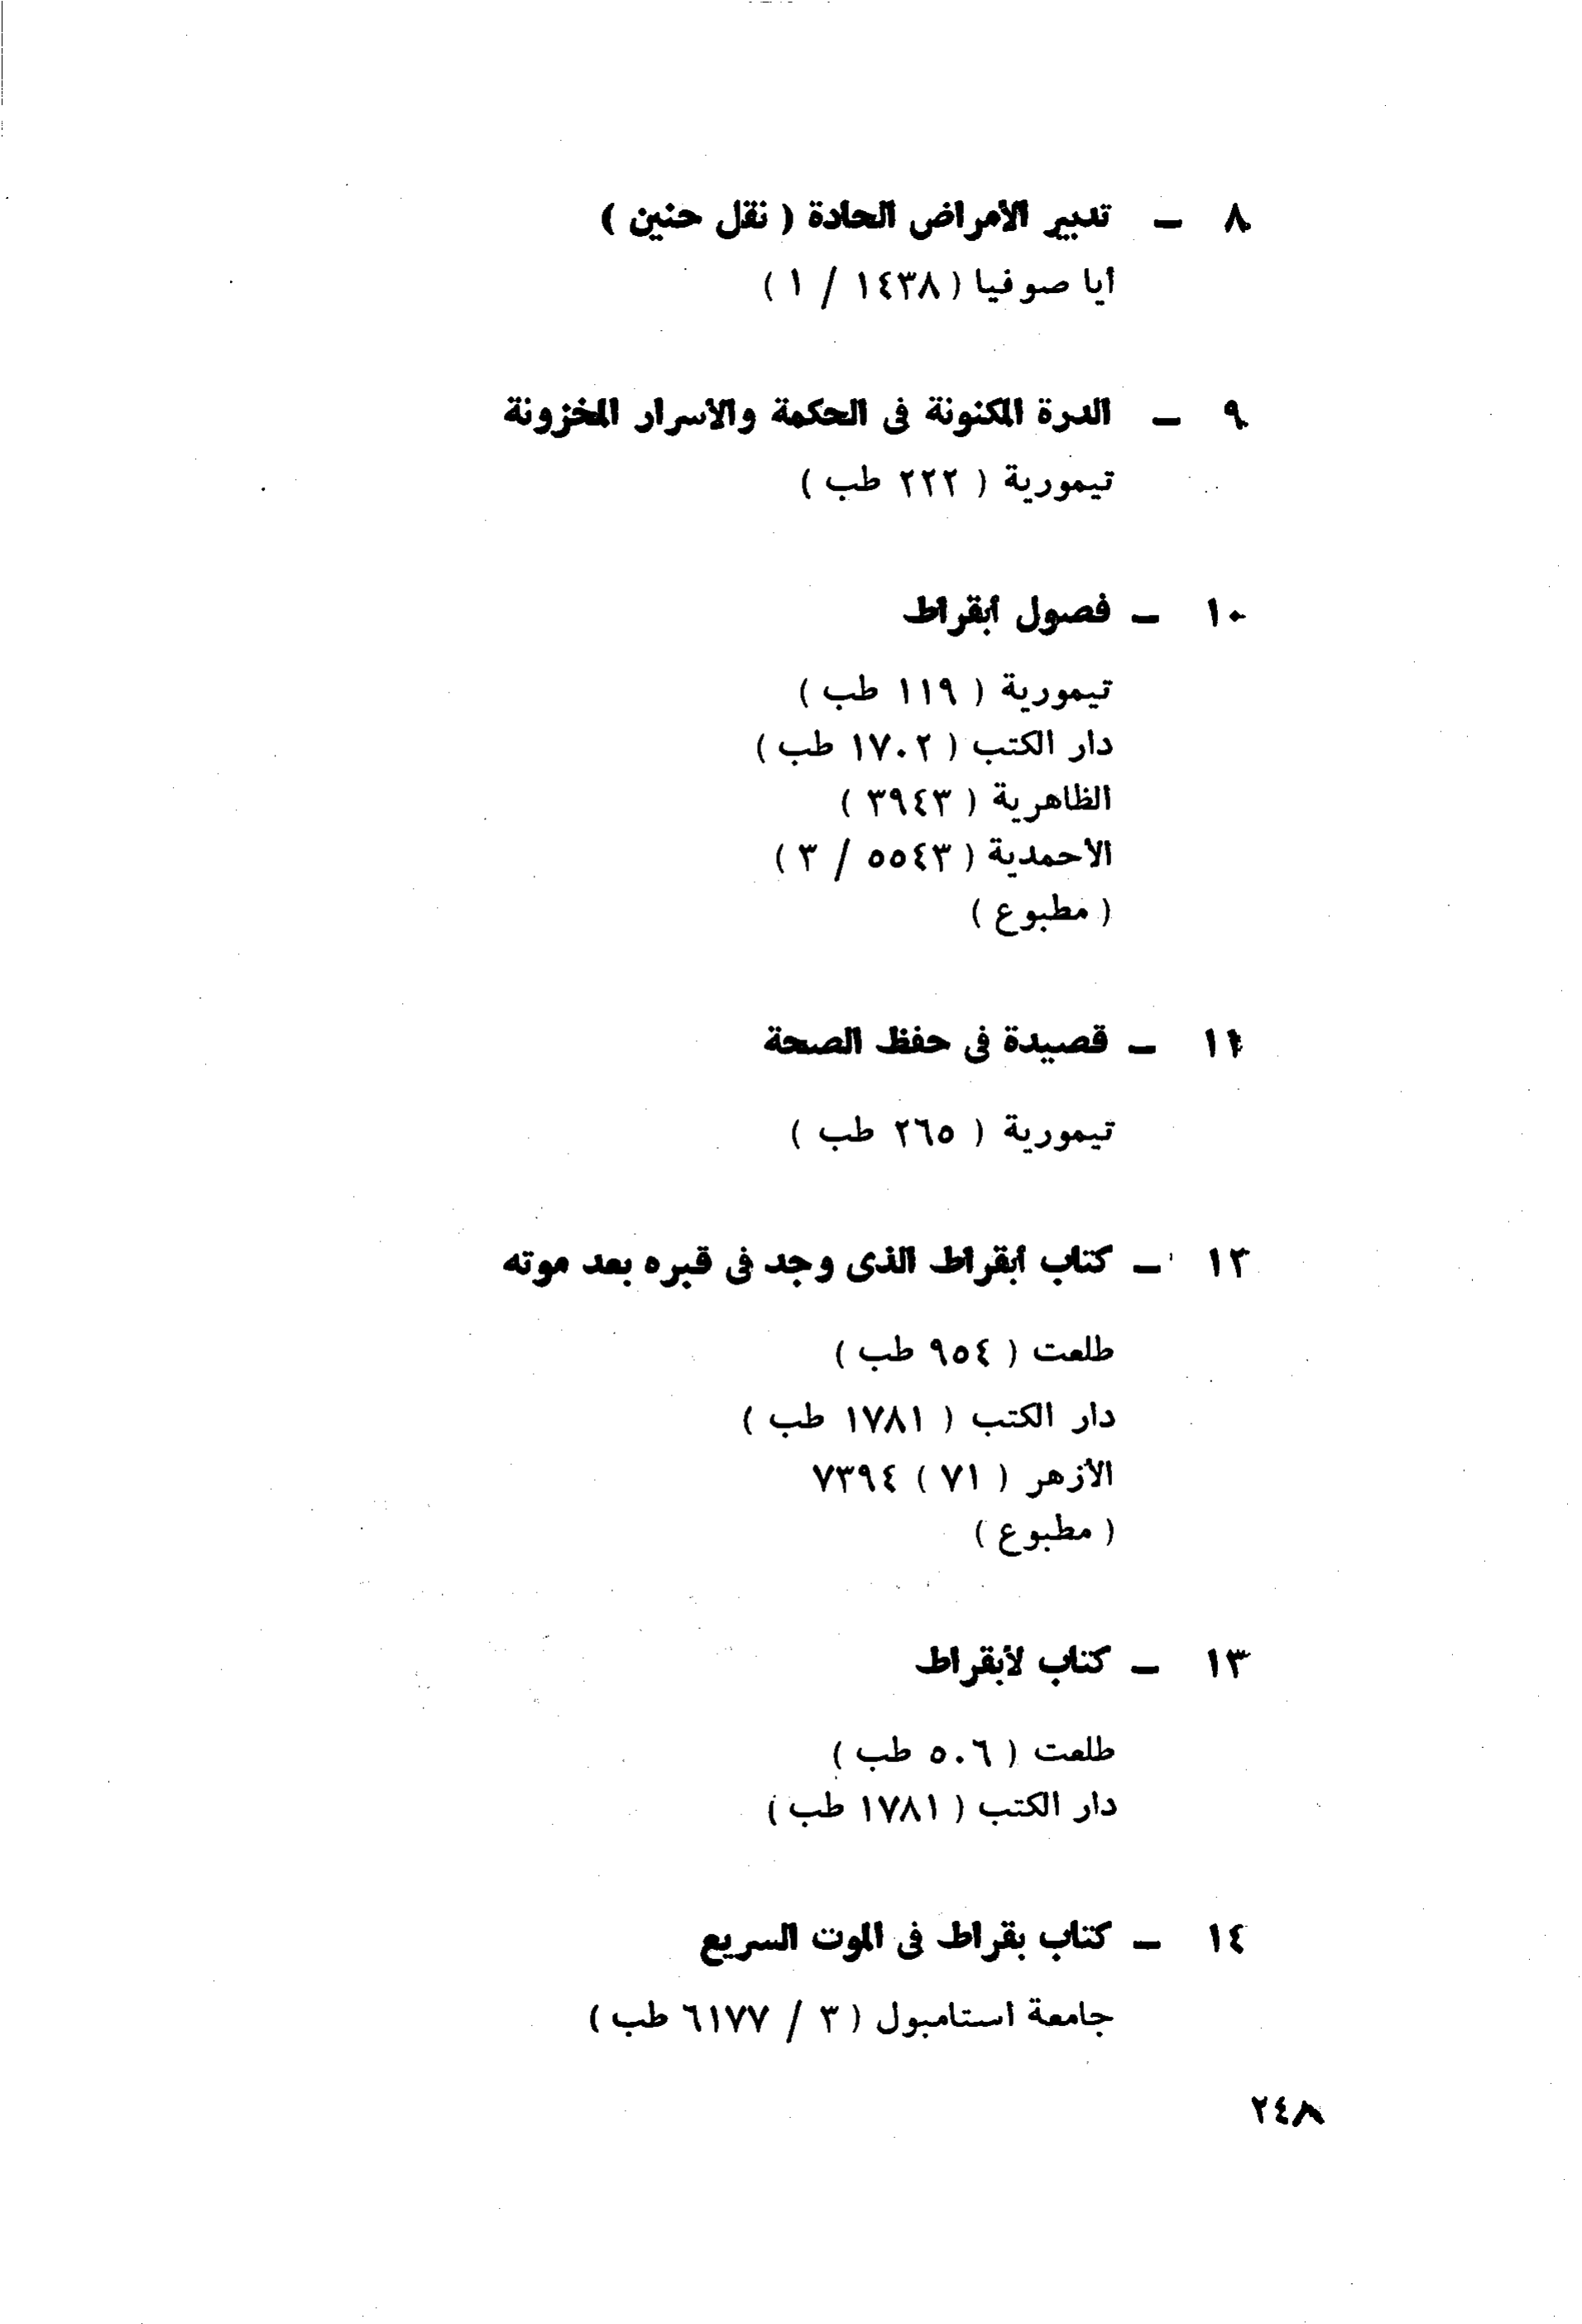 ٨ – تدبير الأمراض الحادة ( نقل حنين )
أيا صوفيا ( ١٤٣٨ / ١ )
٩ – الدرة المكنونة فى الحكمة والأسرار المخزونة
تيمورية ( ٢٢٢ طب )
١٠ – فصول أبقراط
تيمورية ( ١١٩ طب )
دار الكتب ( ١٧٠٢ طب )
الظاهرية ( ٣٩٤٣ )
الأحمدية ( ٥٥٤٣ / ٣ )
( مطبوع )
١١ – قصيدة فى حفظ الصحة
تيمورية ( ٢٦٥ طب )
١٢ – كتاب أبقراط الذى وجد فى قبره بعد موته
طلعت ( ٩٥٤ طب )
دار الكتب ( ١٧٨١ طب )
الأزهر ( ٧١ ) ٧٣٩٤
( مطبوع )
١٣ – كتاب لأبقراط
طلعت ( ٥٠٦ طب )
دار الكتب ( ١٧٨١ طب )
١٤ – كتاب بقراط فى الموت السريع
جامعة استامبول ( ٣ / ٦١٧٧ طب )
٢٤٨